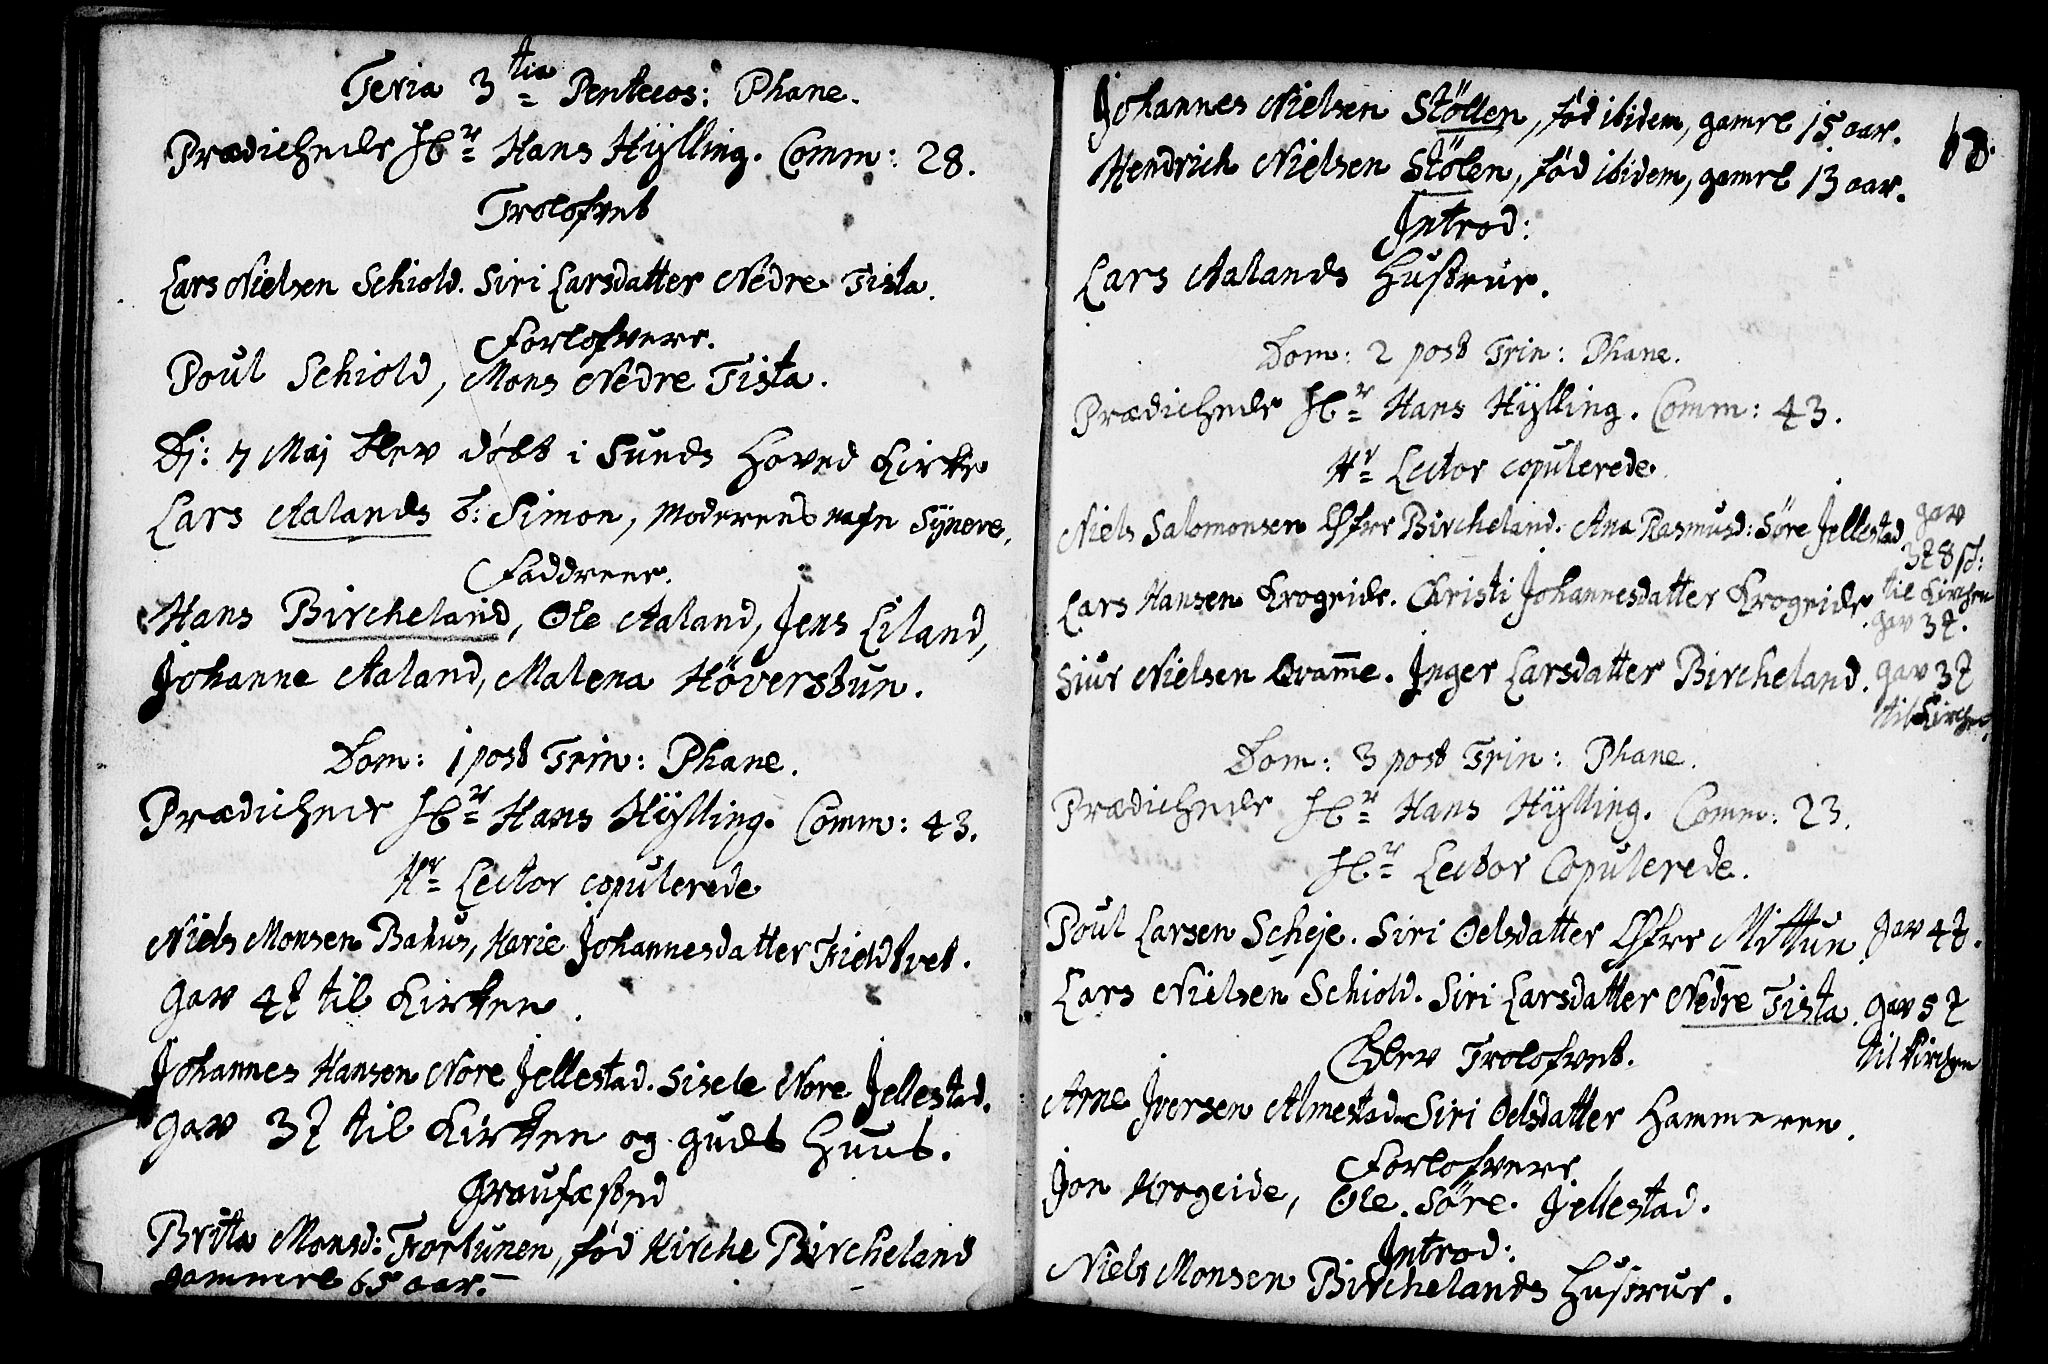 Feria 3 tia Pentecos: Phane.
Prædichede Hr Hans Hÿlling. Comm: 28.
Trolofvet
Lars Nielsen Schiold. Siri Larsdatter Nedre Tista.
Forlofvere.
Poul Schiold, Mons Nedre Tista.
Dj: 7 Maj blev döbt i Sunds Hoved Kirke
Lars Aalands b: Simon, Moderens nafn Syneve,
Faddrene.
Hans Bircheland, Ole Aaland, Jens Liland,
Johanne Aaland, Malena Höverstun.
Dom: 1 post Trin: Phane.
Prædichede Hr Hans Hÿlling. Comm: 43.
Hr Lector copulerede
Niels Monsen Bahus, Marie Johannesdatter Fieldtvet.
gav 4 til Kirken.
Johannes Hansen Nore Jellestad. Sisele Nore Jellestad.
gav 3 til Kirken og guds Huus.
Graufæsted
Brita Monsd: Fortunen, föd Kirche Bircheland
gammel 65 aar.
68.
Johannes Nielsen Stöllen, föd ibidem, gamel 15 aar.
Hendrich Nielsen Stölen, föd ibidem, gamel 13 aar.
Introd:
Lars Aalands Hustrue.
Dom: 2 post Trin: Phane.
Prædichede Hr Hans Hÿlling. Comm: 43.
Hr Lector copulerede
Niels Salomonsen Öfre Bircheland. Ana Rasmusd: Söre Jellestad gav
3 8 sk:
til Kirchen
Lars Hansen Krogeide. Christi Johannesdatter Krogeide. gav 3.
Siur Nielsen Qvam̄e. Inger Larsdatter Bircheland. gav 3
til Kirchen.
Dom: 3 post Trin: Phane.
Prædichede Hr Hans Hÿlling. Comm: 23.
Hr Lector Copulerede.
Poul Larsen Scheje. Siri Oelsdatter Öfre Mittun. gav 4.
Lars Nielsen Schiold. Siri Larsdatter Nedre Tista. gav 5
til Kirchen
Blev Trolofvet.
Arne Iversen Almestad Siri Oelsdatter Hammeren.
Forlofvere
Jon Krogeide, Ole Söre Jellestad.
Introd:
Niels Monsen Birchelands Hustrue.